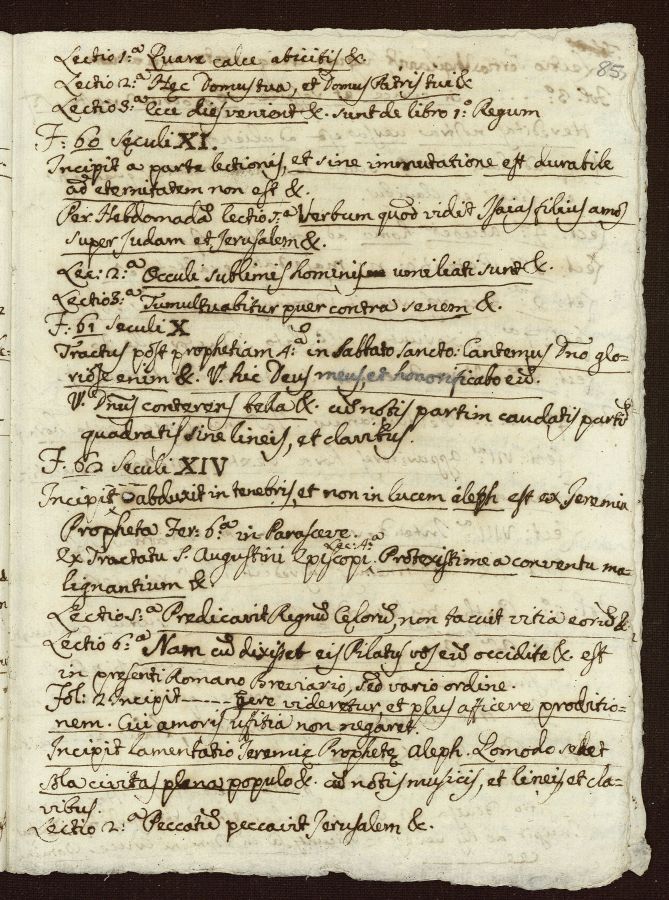 85
Lectio 1.ª Quare calce abicitis &.
Lectio 2.ª Hęc Domus tua, et Domus Patris tui &
Lectio 3.ª Ecce dies veniont &. sunt de libro 1.º Regum
F. 60 Seculi XI.
Incipit a parte lectionis, et sine immutatione est durabile
ad eternitatem non est &.
Per Hebdomadā lectio 1.ª Verbum quod vidit Isaias filius amos
super Judam et Jerusalem &.
Lec: 2.ª Occuli sublimis hominis umiliati sunt &.
Lectio 3.ª Tumultuabitur puer contra senem &.
F. 61 Seculi X
Tractus post prophetiam 4.ª in Sabbato Sancto: Cantemus Dno glo-
riose enim &. V. hic Deus meus et honorificabo eū.
V. Dnus conterens bella &. cū notis partim caudatis partī
quadratis sine lineis, et clavibus.
F. 62 Seculi XIV
Incipit abduxit in tenebris, et non in lucem aleph est ex Jeremia
Propheta Fer: 6.ª in Parasceve.
ex Tractatu S. Augustini Episcopi Lec: 4.ª Protexisti me a conventu ma-
lignantium &.
Lectio 5.ª Predicavit Regnū Celorū, non tacuit vitia eorū &
Lectio 6.ª Nam cū dixisset eis Pilatus vos eū occidite &. est
in presenti Romano Breviario, sed vario ordine.
Fol: 2 Incipit ---- here videretur et plus afficere proditio-
nem. Cui amoris non negaret.
Incipit lamentatio Jeremię Prophetę Aleph. Quomodo sedet
sola civitas plena populo &. cū notis musicis, et lineis, et cla-
vibus.
Lectio 2.ª Peccatū peccavit Jerusalem &.